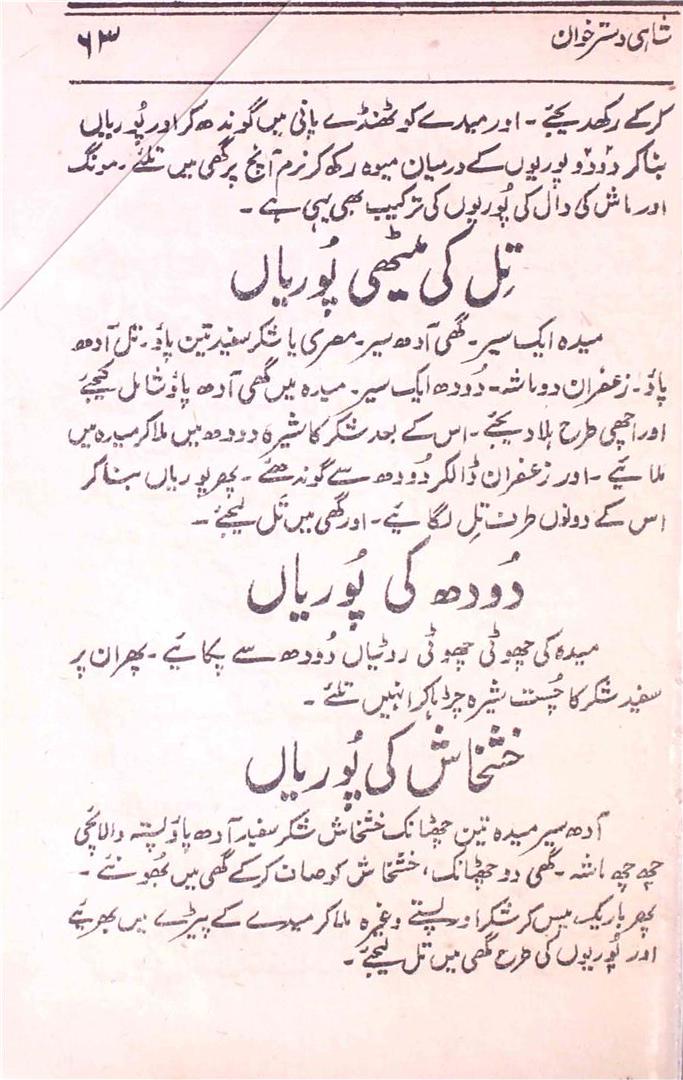 شاہی دسترخوان
۶۳
کرکے رکھدیجئے۔ اور میدے کو ٹھنڈے پانی میں گوندھ کر اور پُوریاں
بنا کر دو دو پوریوں کے درمیان میوہ رکھ کر نرم آنچ پر گھی میں تلئے۔ مونگ
اور ماش کی دال کی پُوریوں کی ترکیب بھی یہی ہے۔
تِل کی میٹھی پُوریاں
میدہ ایک سیر۔ گھی آدھ سیر۔ مصری یا شکر سفید تین پاؤ۔ تل آدھ
پاؤ۔ زعفران دو ماشہ۔ دُودھ ایک سیر۔ میدہ میں گھی آدھ پاؤ شامل کیجئے
اور اچھی طرح ہلا دیجئے۔ اس کے بعد شکر کا شیرہ دودھ میں ملا کر میدہ میں
ملائیے۔ اور زعفران ڈالکر دُودھ سے گوندھئے۔ پھر پوریاں بنا کر
اس کے دونوں طرف تِل لگائیے۔ اور گھی میں تَل لیجئے۔
دُودھ کی پُوریاں
میدہ کی چھوٹی چھوٹی روٹیاں دُودھ سے پکائیے۔ پھر ان پر
سفید شکر کا چُست شیرہ چڑہا کر انہیں تلئے۔
خشخاش کی پُوریاں
آدھ سیر میدہ تین چھٹانک خشخاش شکر سفید آدھ پاؤ پستہ والائچی
چھ چھ ماشہ۔ گھی دو چھٹانک، خشخاش کو صاف کرکے گھی میں بھُونئے۔
پھر باریک پیس کر شکر اور پستے وغیرہ ملا کر میدے کے پیڑے میں بھرئیے
اور پُوریوں کی طرح گھی میں تل لیجئے۔